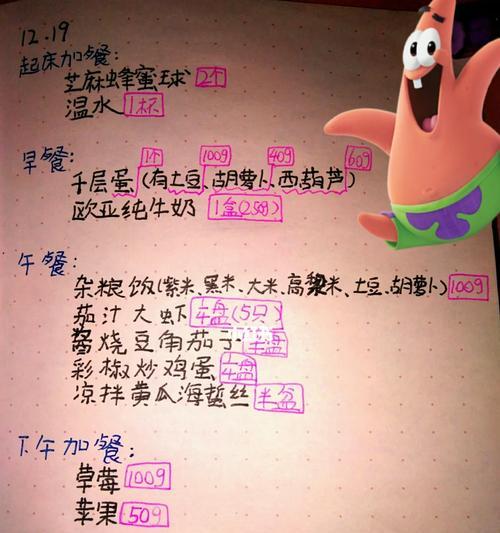 12.19
起床加餐:
芝麻蜂蜜球 2个
温水 1杯
早餐: 1个 100g 40g 60g
千层蛋(有土豆、胡萝卜、西葫芦)
欧亚纯牛奶 1盒(250g)
午餐:
杂粮饭(紫米、黑米、大米、高粱米、土豆、胡萝卜) 100g
茄汁大虾 1/4盘(5只)
烧豆角茄子 半盘
彩椒炒鸡蛋 1/4盘
凉拌黄瓜海蜇丝 半盆
下午加餐:
草莓 100g
苹果 50g